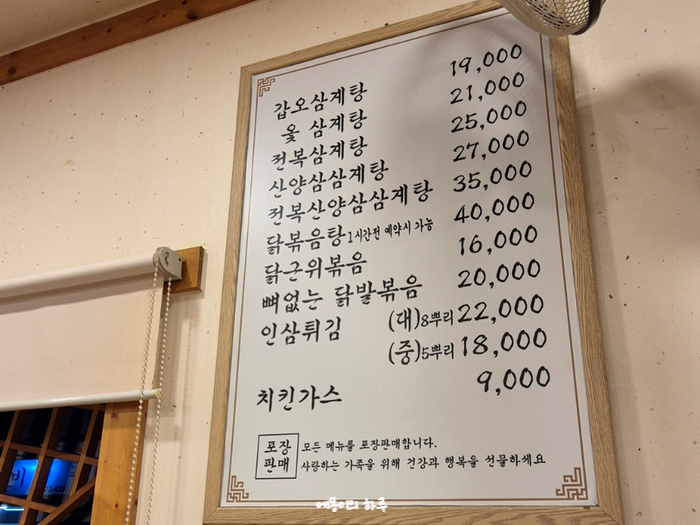 갑오삼계탕 19,000
옻 삼계탕 21,000
전복삼계탕 25,000
산양삼삼계탕 27,000
전복산양삼삼계탕 35,000
닭볶음탕 1시간전 예약시 가능 40,000
닭근위볶음 16,000
뼈없는 닭발볶음 20,000
인삼튀김 (대)8뿌리 22,000
(중)5뿌리 18,000
치킨가스 9,000
포장 판매 모든 메뉴를 포장판매합니다.
사랑하는 가족을 위해 건강과 행복을 선물하세요
비